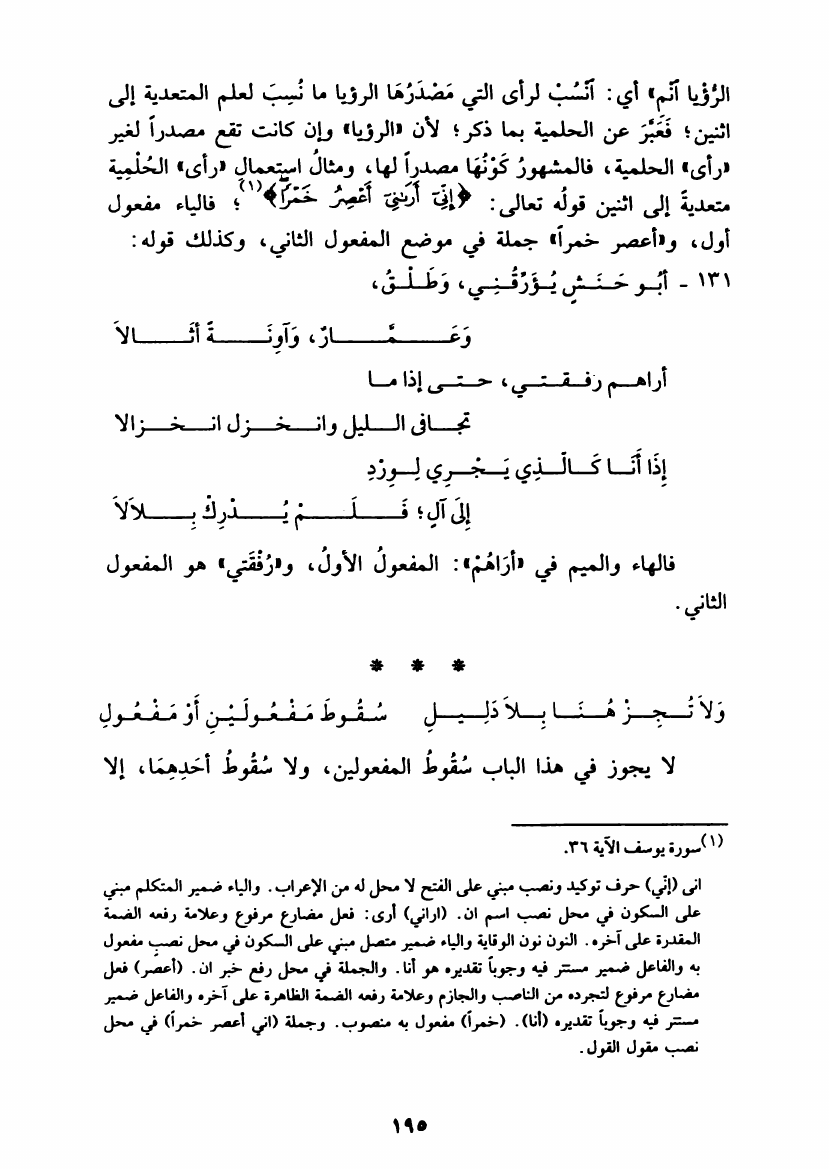 الرُّؤْيا آنْمِ» أي: آنْسُبْ لرأى التي مَصْدَرُهَا الرؤيا ما نُسِبَ لعلم المتعدية إلى
اثنين؛ فَعَبَّرَ عن الحلمية بما ذكر؛ لأن «الرؤيا» وإن كانت تقع مصدراً لغير
«رأى» الحلمية، فالمشهورُ كَوْنُهَا مصدراً لها، ومثالُ استعمالِ «رأى» الحُلْمِية
متعديةً إلى اثنين قولُه تعالى: ﴿إِنِّيٓ أَرَىٰنِيٓ أَعْصِرُ خَمْرًا﴾(١)؛ فالياء مفعول
أول، و«أعصر خمراً» جملة في موضع المفعول الثاني، وكذلك قوله:
١٣١ - أبُـو حَـنَـشٍ يُـؤَرِّقُـنِـي، وَطَـلْـقُ،
وَعَـمَّـارٌ، وَآوِنَـةً أُثَـالاَ
أراهـم رفـقـتـي، حـتـى إذا مـا
تجـافى الـليل وانـخـزل انـخـزالا
إِذَا أَنَـا كَـالَّـذِي يَـجْـرِي لِـوِرْدٍ
إِلَى آلٍ؛ فَـلَـمْ يُـدْرِكْ بِـلاَلاَ
فالهاء والميم في «أرَاهُمْ»: المفعولُ الأولُ، و«رُفْقَتي» هو المفعول
الثاني.
* * *
وَلاَ تُـجِـزْ هُـنَـا بِـلاَ دَلِـيـلِ سُـقُـوطَ مَـفْـعُـولَـيْـنِ أَوْ مَـفْـعُـولِ
لا يجوز في هذا الباب سُقُوطُ المفعولين، ولا سُقُوطُ أحَدِهِمَا، إلا
(١) سورة يوسف الآية ٣٦.
انى (إنِّي) حرف توكيد ونصب مبني على الفتح لا محل له من الإعراب. والياء ضمير المتكلم مبني
على السكون في محل نصب اسم ان. (اراني) أرى: فعل مضارع مرفوع وعلامة رفعه الضمة
المقدرة على آخره. النون نون الوقاية والياء ضمير متصل مبني على السكون في محل نصبٍ مفعول
به والفاعل ضمير مستتر فيه وجوباً تقديره هو أنا. والجملة في محل رفع خبر ان. (أعصر) فعل
مضارع مرفوع لتجرده من الناصب والجازم وعلامة رفعه الضمة الظاهرة على آخره والفاعل ضمير
مستتر فيه وجوباً تقديره (أنا). (خمراً) مفعول به منصوب. وجملة (اني أعصر خمراً) في محل
نصب مقول القول.
١٩٥